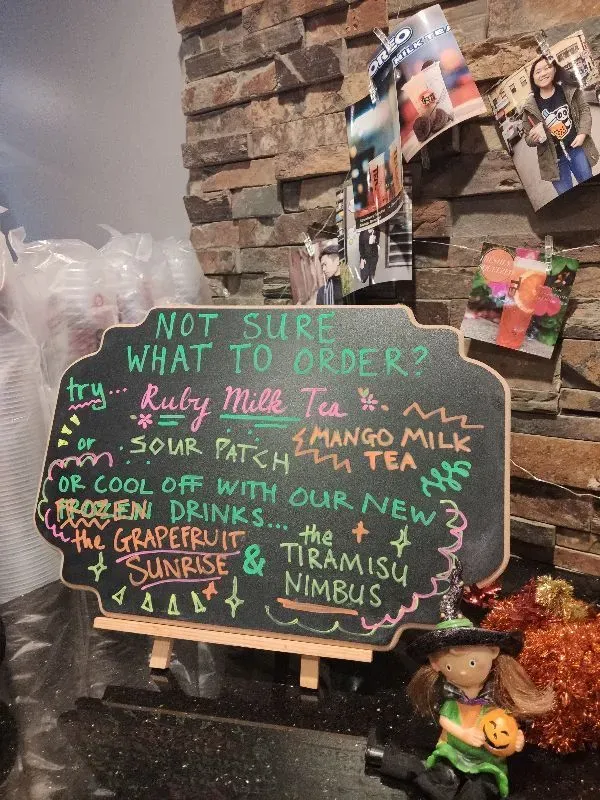 NOT SURE
WHAT TO ORDER?
try... Ruby Milk Tea
or SOUR PATCH
MANGO MILK
TEA
OR COOL OFF WITH OUR NEW
FROZEN DRINKS...
the GRAPEFRUIT
SUNRISE &
the
TIRAMISU
NIMBUS
OREO
MILK TEA